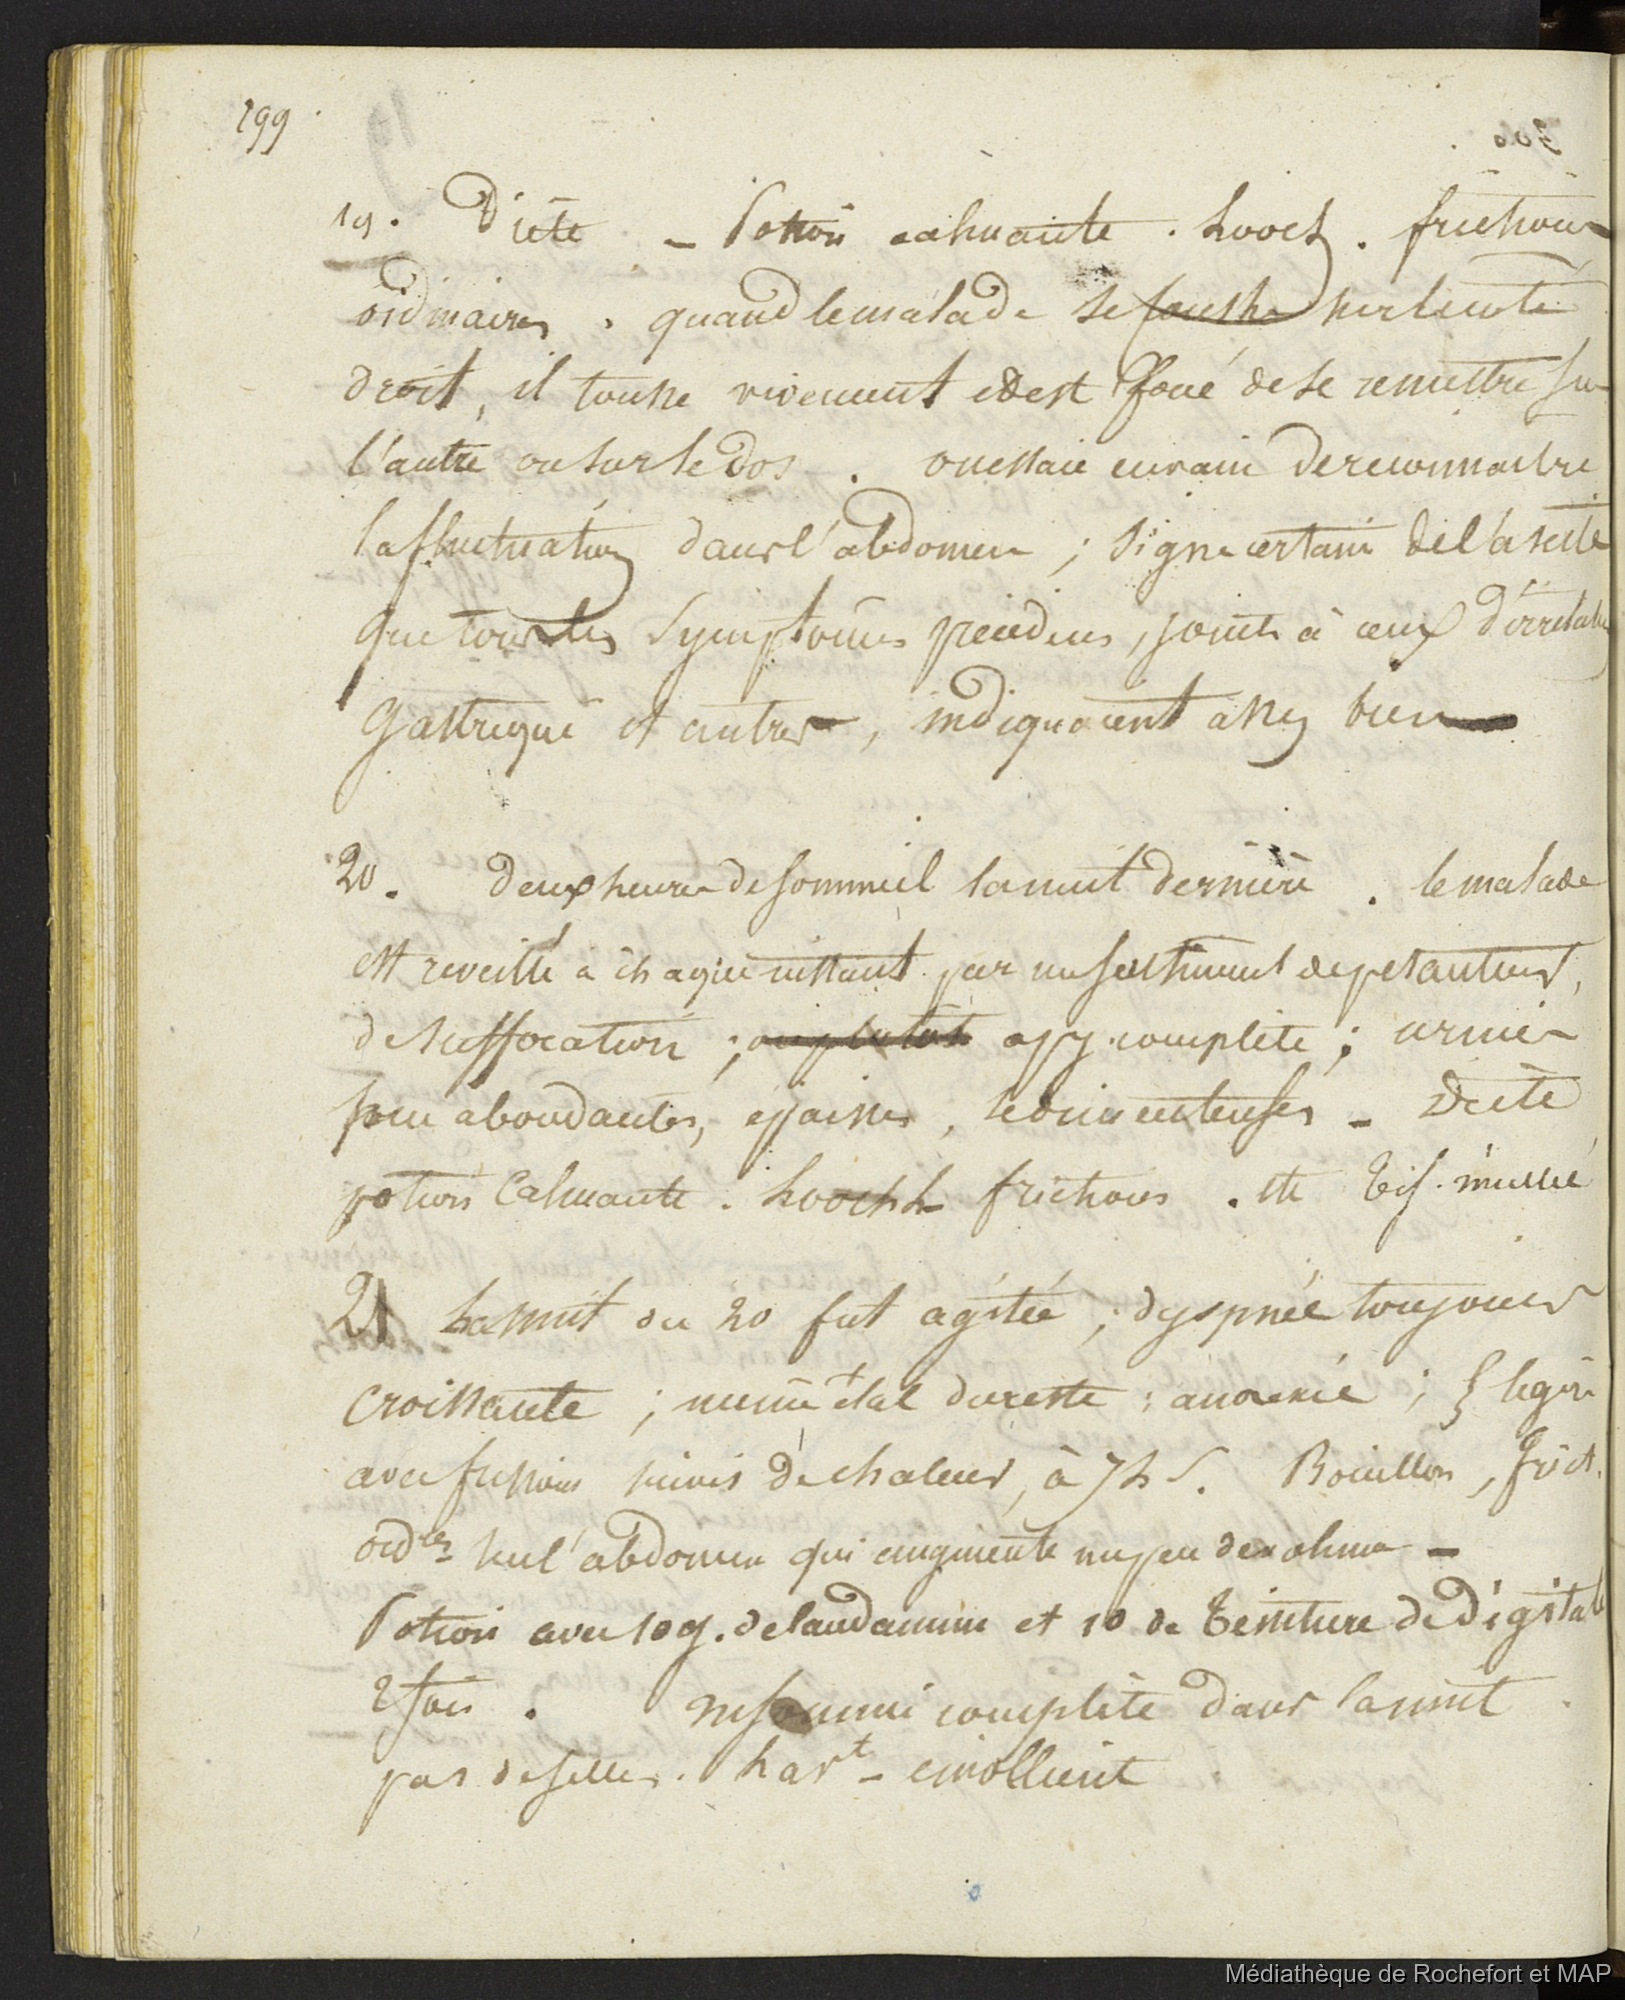 299
19. Diète – Potion calmante. looch. frictions
ordinaires. quand le malade se couche sur le coté
droit, il tousse vivement et est forcé de se remettre sur
l'autre ou sur le dos. on essaie en vain de reconnaitre
la fluctuation dans l'abdomen; signe certain de l'ascite
que tous les symptômes précédens, joints à ceux d'irritation
gastrique et autres, indiquaient assez bien
20. deux heures de sommeil la nuit dernière. le malade
est reveillé à chaque instant par un sentiment de pesanteur,
de suffocation; ou plutôt apy. complète; urines
peu abondantes, epaisses, sedimenteuses – Diète
potion calmante. looch frictions. Tis. miellé
21 La nuit du 20 fut agitée; dyspnée toujours
croissante; même état du reste; anorexie; légère
avec frissons suivis de chaleur, à 7 h S. Bouillon, frict.
ord.res sur l'abdomen qui augmente un peu de volume –
Potion avec 10 g. de laudanum et 10 de teinture de Digitale
2 fois. insomnie complète dans la nuit
pas de selles. lav.t – emollient
Médiathèque de Rochefort et MAP